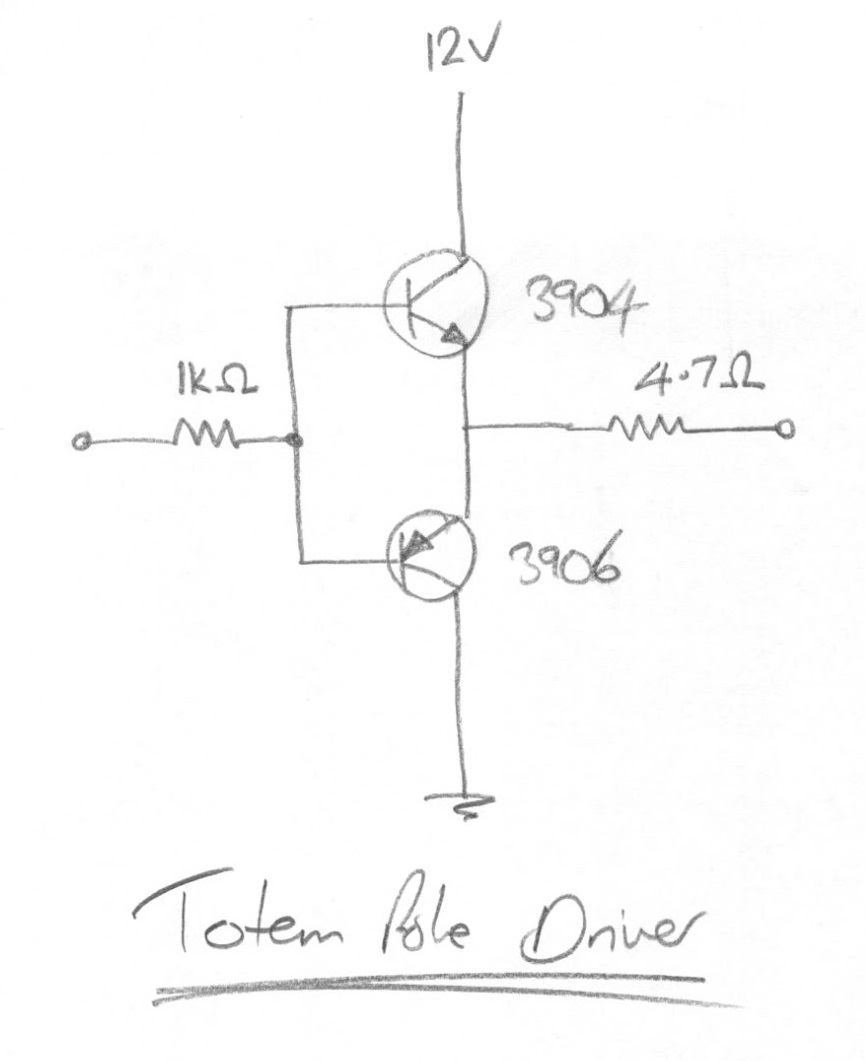 12V
3904
1kΩ
4.7Ω
3906
Totem Pole Driver